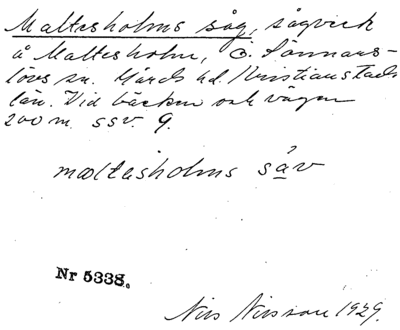 Maltesholms såg, sågverk
å Maltesholm, Ö. Sönnars-
lövs sn. Gärds hd. Kristianstads
län. Vid bäcken och vägen
200 m. SSV. G.
mæltəshɷlms såv
Nr 5338.
Nils Nilsson 1929.